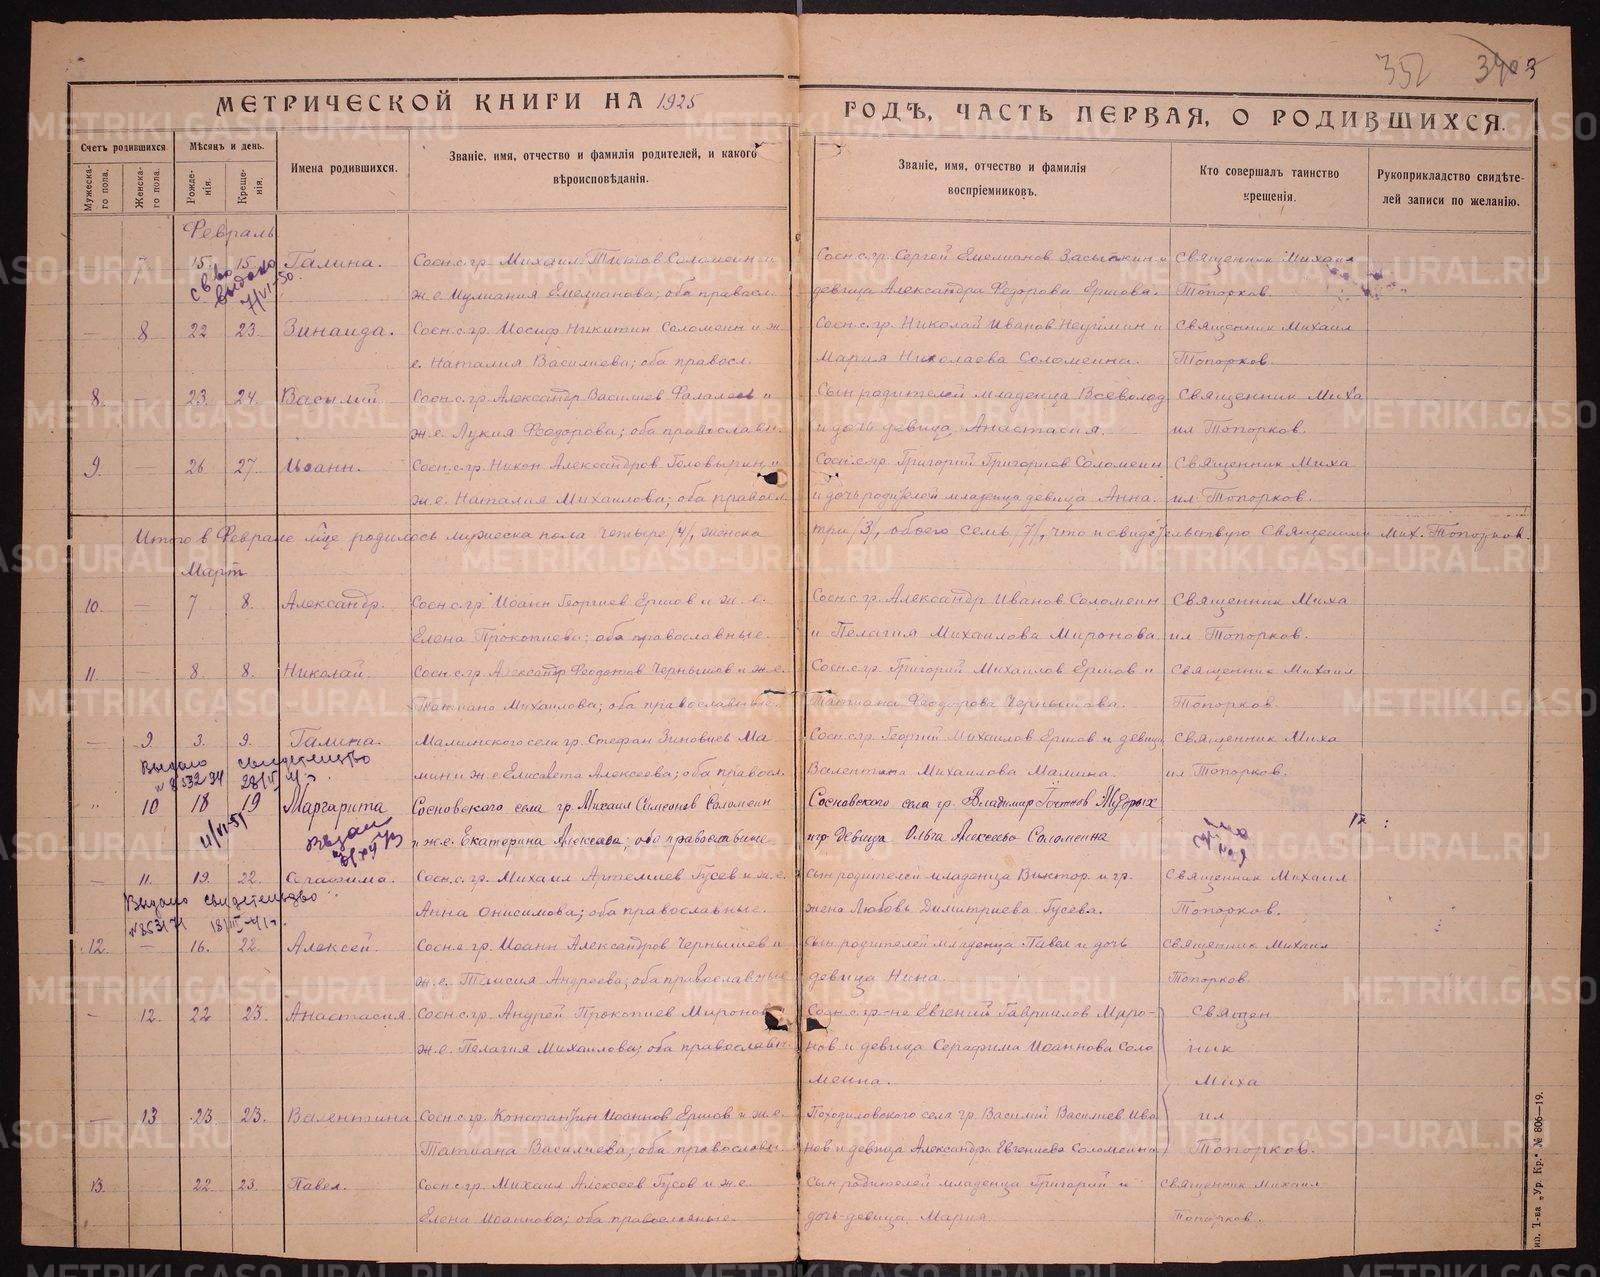 352 3903
МЕТРИЧЕСКОЙ КНИГИ НА 1925 ГОДЪ, ЧАСТЬ ПЕРВАЯ, О РОДИВШИХСЯ.
Счетъ родившихся
Мѣсяцъ и день.
Имена родившихся.
Званіе, имя, отчество и фамилія родителей, и какого
вѣроисповѣданія.
Званіе, имя, отчество и фамилія
воспріемниковъ.
Кто совершалъ таинство
крещенія.
Рукоприкладство свидѣте-
лей записи по желанію.
Мужеска-
го пола.
Женска-
го пола.
Рожде-
нія.
Креще-
нія.
Февраль
7 15. 15. Галина. Сосн.с.гр. Михаил Титов Соломеин и Сосн.с.гр. Сергей Емелианов Засыпкин и Священник Михаил
ж.е. Иулиания Емелианова; оба правосл. девица Александра Федорова Ершова. Топорков.
св-во
выдано
7/VI-50.
— 8 22 23. Зинаида. Сосн.с.гр. Иосиф Никитин Соломеин и ж. Сосн.с.гр. Николай Иванов Неуймин и Священник Михаил
е. Наталия Василиева; оба правосл. Мария Николаева Соломеина. Топорков.
8. — 23. 24. Василий. Сосн.с.гр. Александр Василиев Фалалеев и Сын родителей младенца Всеволод Священник Миха
ж.е. Лукия Феодорова; оба православн. и дочь девица Анастасия. ил Топорков.
9. 26. 27. Иоанн. Сосн.с.гр. Никон Александров Головырин и Сосн.с.гр. Григорий Григориев Соломеин Священник Миха
ж.е. Наталия Михаилова; оба правосл. и дочь родителей младенца девица Анна. ил Топорков.
Итого в Феврале м-це родилось мужеска пола четыре /4/, женска три /3/, обоего семь /7/, что и свидетельствую Священник Мих. Топорков.
Март
10. — 7 8. Александр. Сосн.с.гр. Иоанн Георгиев Ершов и ж.е. Сосн.с.гр. Александр Иванов Соломеин Священник Миха
Елена Прокопиева; оба православные. и Пелагия Михаилова Миронова ил Топорков.
11. — 8. 8. Николай. Сосн.с.гр. Александр Феодотов Чернышов и ж.е. Сосн.с.гр. Григорий Михаилов Ершов и Священник Михаил
Татиана Михаилова; оба православные. Татиана Феодорова Чернышова. Топорков.
— 9. 3. 9. Галина. Маминского села гр. Стефан Зиновиев Ма Сосн.с.гр. Георгий Михаилов Ершов и девица Священник Миха
мин и ж.е. Елисавета Алексеева; оба правосл. Валентина Михаилова Мамина. ил Топорков.
Выдано свидетельство
28/II
" 10 18 19 Маргарита Сосновского села гр. Михаил Симеонов Соломеин Сосновского села гр. Владимир
и ж.е. Екатерина Алексеева; оба православные и гр девица Ольга Алексеево Соломеина
4/VI-51
— 11. 19. 22. Серафима. Сосн.с.гр. Михаил Артемиев Гусев и ж.е. сын родителей младенца Виктор и гр. Священник Михаил
Анна Онисимова; оба православные. жена Любовь Димитриева Гусева. Топорков.
Выдано свидетельство
12. — 16. 22. Алексей. Сосн.с.гр. Иоанн Александров Чернышев и сын родителей младенца Павел и дочь священник Михаил
ж.е. Таисия Андреева; оба православные девица Нина. Топорков.
— 12. 22 23. Анастасия. Сосн.с.гр. Андрей Прокопиев Миронов Сосн.с.гр-не Евгений Гавриилов Миро- Священ
ж.е. Пелагия Михаилова; оба православн. нов и девица Серафима Иоаннова Соло ник
меина. Миха
— 13 23. 23. Валентина Сосн.с.гр. Константин Иоаннов Ершов и ж.е. Походиловского села гр. Василий Василиев Ива ил
Татиана Василиева; оба православн. нов и девица Александра Евгениева Соломеина Топорков.
13. 22 23. Павел. Сосн.с.гр. Михаил Алексеев Гусев и ж.е. Сын родителей младенца Григорий и священник Михаил
Елена Иоаннова; оба православные. дочь-девица Мария. Топорков.
Т-ва „Ур. Кр.“ № 806—19.
METRIKI.GASO-URAL.RU